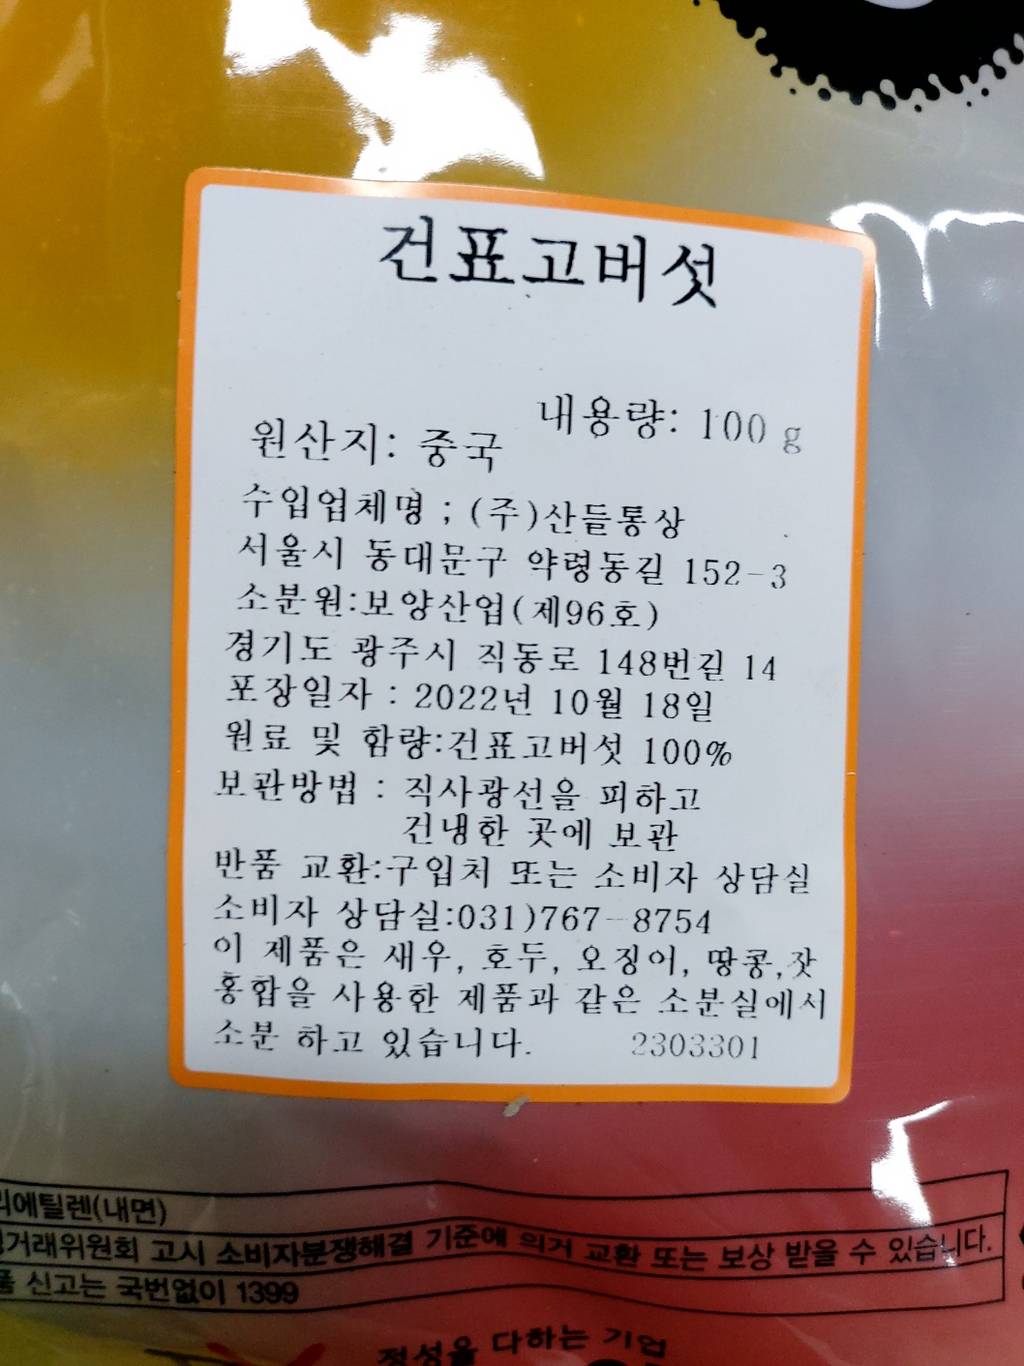 건표고버섯
내용량: 100 g
원산지: 중국
수입업체명 ; (주)산들통상
서울시 동대문구 약령동길 152-3
소분원:보양산업(제96호)
경기도 광주시 직동로 148번길 14
포장일자 : 2022년 10월 18일
원료 및 함량:건표고버섯 100%
보관방법 : 직사광선을 피하고
건냉한 곳에 보관
반품 교환:구입처 또는 소비자 상담실
소비자 상담실:031)767-8754
이 제품은 새우, 호두, 오징어, 땅콩,잣
홍합을 사용한 제품과 같은 소분실에서
소분 하고 있습니다. 2303301
리에틸렌(내면)
거래위원회 고시 소비자분쟁해결 기준에 의거 교환 또는 보상 받을 수 있습니다.
품 신고는 국번없이 1399
정성을 다하는 기업